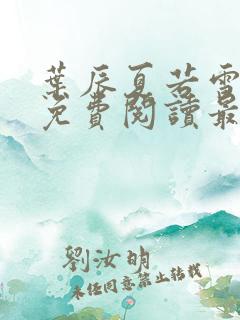 葉辰夏若雪
免費閱讀最
劉汝明
未經同意禁止轉載